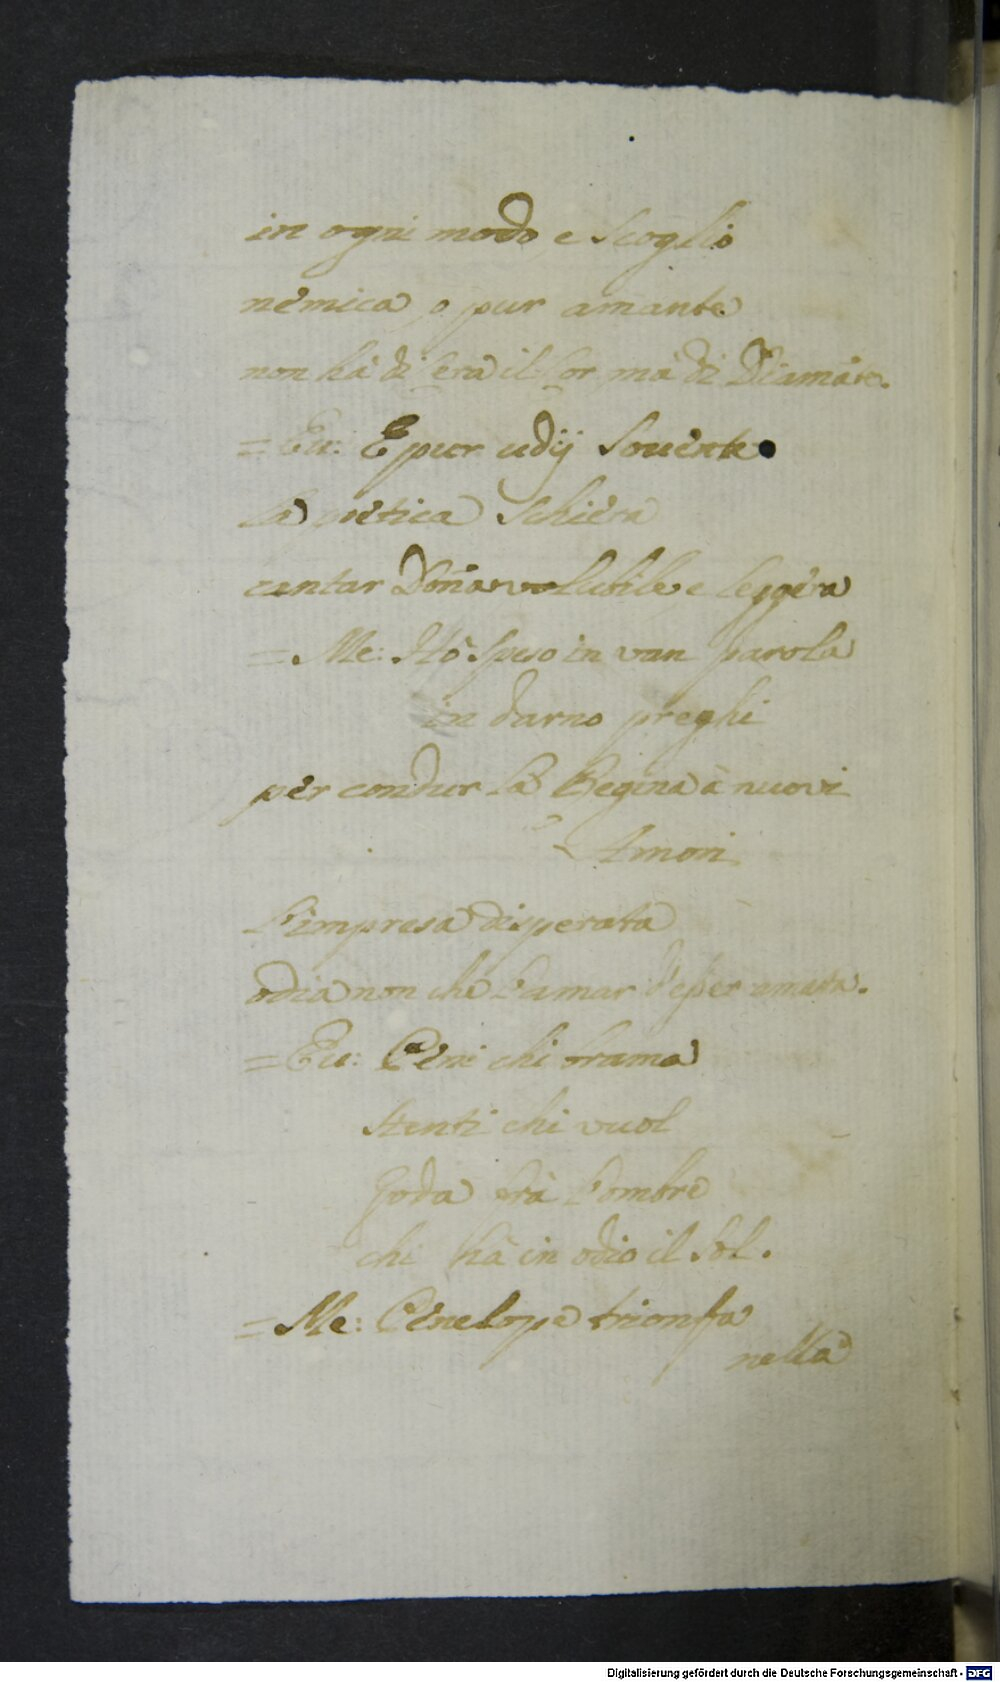 in ogni modo, e scoglio
nemica, o pur amante
non hà di Cera il Cor, mà di Diamãte.
= Eu: E pur udij souente
la poetica schiera
cantar Dõna volubile e leggera
= Me: Hò speso in van parola
in darno preghi
per condur la Regina à nuovi
Amori
L'impresa disperata
odia non che l'amar d'esser amata.
= Eu: Peni chi brama
stenti chi vuol
goda frà l'ombre
chi hà in odio il Sol.
= Me: Penelope trionfa
nella
Digitalisierung gefördert durch die Deutsche Forschungsgemeinschaft - DFG